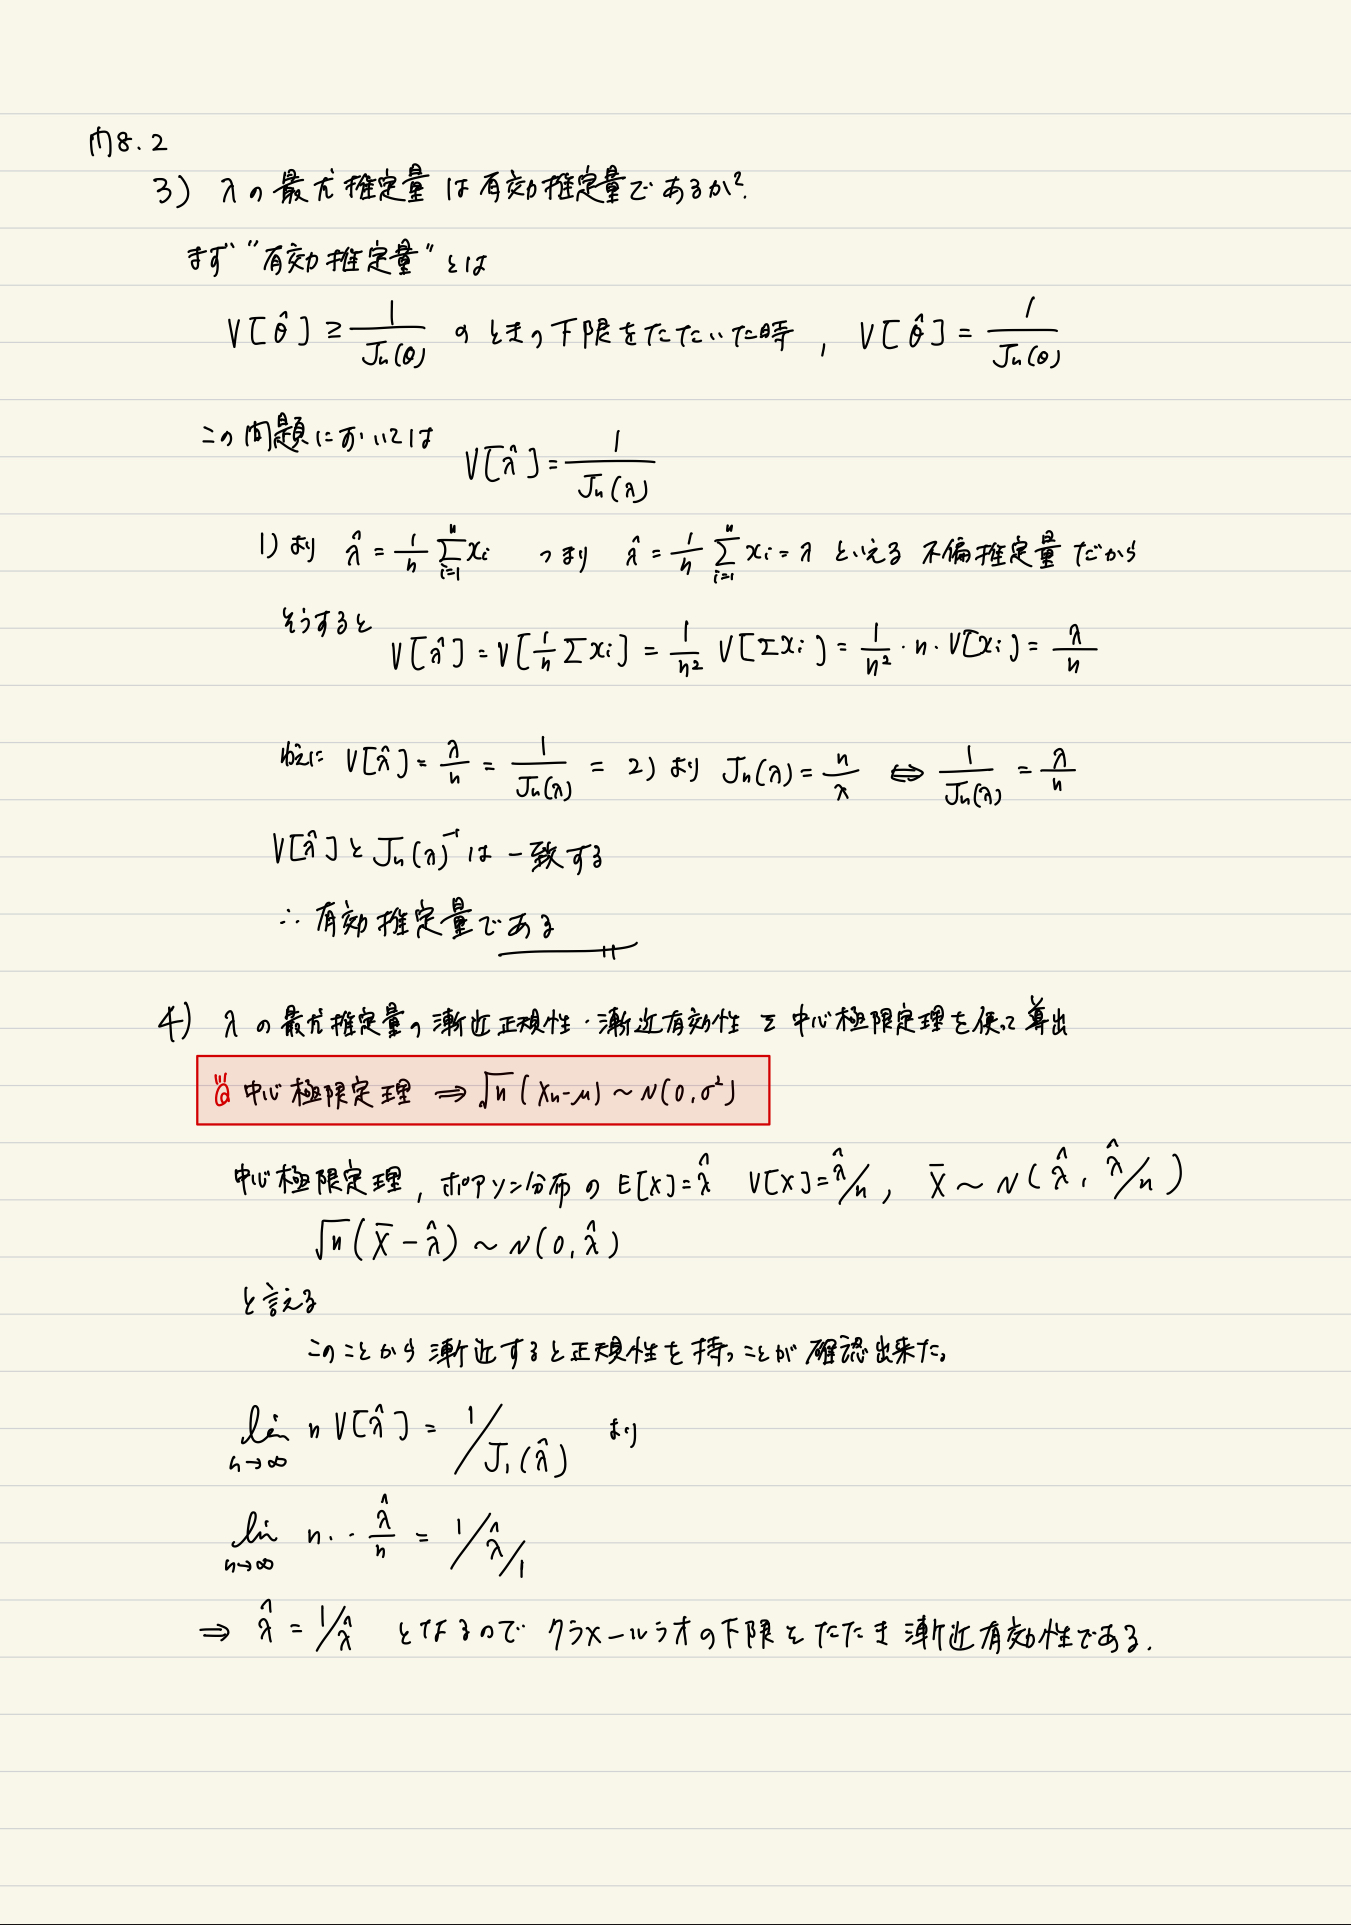 問8.2
3) λの最尤推定量は有効推定量であるか?
まず"有効推定量"とは
V[θ̂] ≥ 1/Jn(θ) のときの下限をたたいた時, V[θ̂] = 1/Jn(θ)
この問題においては V[λ̂] = 1/Jn(λ)
1)より λ̂ = 1/n Σ_{i=1}^{n} xi つまり λ̂ = 1/n Σ_{i=1}^{n} xi = λ といえる 不偏推定量だから
そうすると V[λ̂] = V[1/n Σxi] = 1/n² V[Σxi] = 1/n²・n・V[xi] = λ/n
ゆえに V[λ̂] = λ/n = 1/Jn(λ) = 2)より Jn(λ) = n/λ ⇔ 1/Jn(λ) = λ/n
V[λ̂]とJn(λ)⁻¹は一致する
∴ 有効推定量である
4) λの最尤推定量の漸近正規性・漸近有効性を中心極限定理を使って導出
中心極限定理 ⇒ √n(Xn-μ) ~ N(0,σ²)
中心極限定理, ポアソン分布の E[X]=λ̂ V[X]=λ̂/n, X̄ ~ N(λ̂, λ̂/n)
√n(X̄-λ̂) ~ N(0,λ̂)
と言える
このことから漸近すると正規性を持つことが確認出来た。
lim_{n→∞} n V[λ̂] = 1/J₁(λ̂) より
lim_{n→∞} n・・λ̂/n = 1/λ̂/1
⇒ λ̂ = 1/λ̂ となるのでクラメールラオの下限をたたき漸近有効性である.